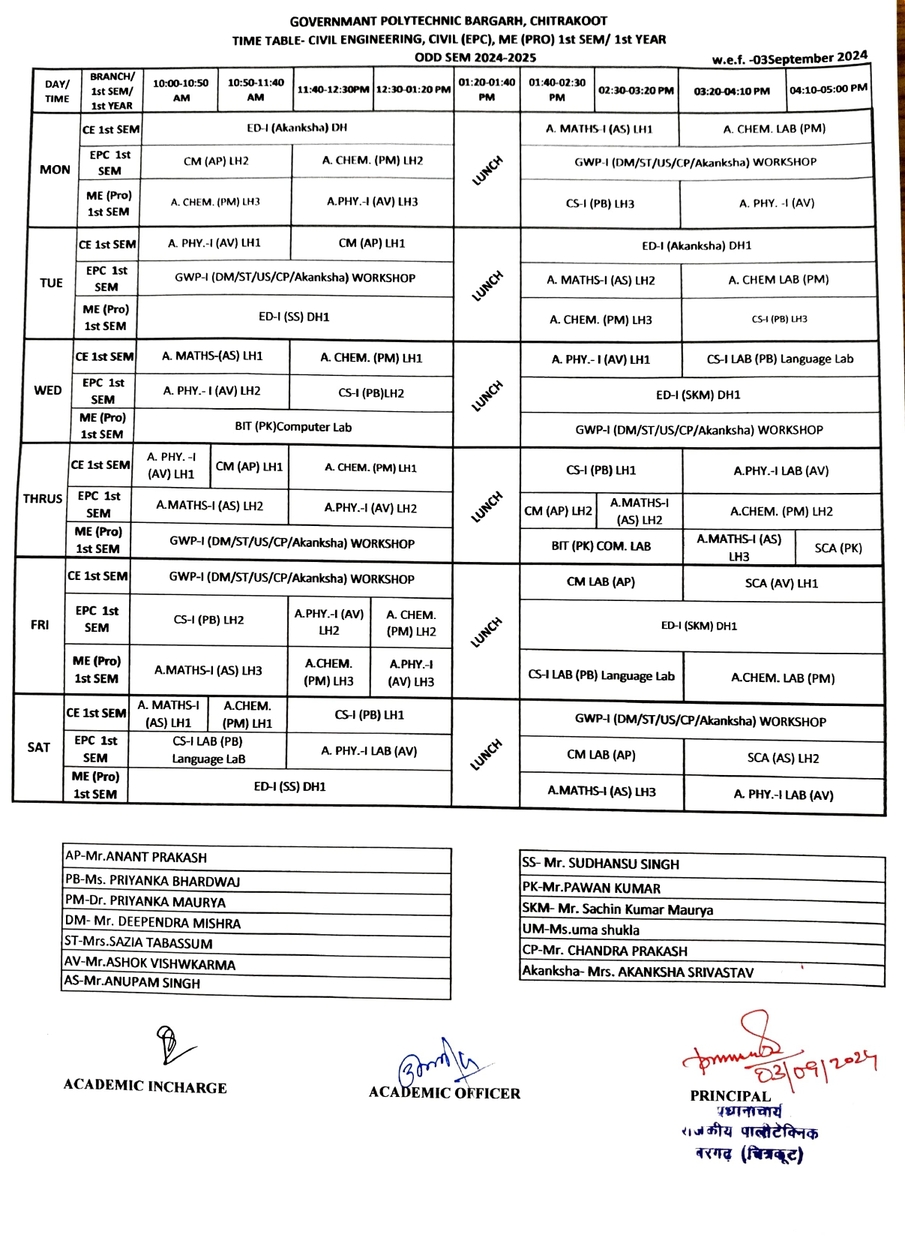 GOVERNMANT POLYTECHNIC BARGARH, CHITRAKOOT
TIME TABLE- CIVIL ENGINEERING, CIVIL (EPC), ME (PRO) 1st SEM/ 1st YEAR
ODD SEM 2024-2025
w.e.f. -03September 2024
DAY/ TIME BRANCH/ 1st SEM/ 1st YEAR 10:00-10:50 AM 10:50-11:40 AM 11:40-12:30PM 12:30-01:20 PM 01:20-01:40 PM 01:40-02:30 PM 02:30-03:20 PM 03:20-04:10 PM 04:10-05:00 PM
MON
CE 1st SEM ED-I (Akanksha) DH LUNCH A. MATHS-I (AS) LH1 A. CHEM. LAB (PM)
EPC 1st SEM CM (AP) LH2 A. CHEM. (PM) LH2 GWP-I (DM/ST/US/CP/Akanksha) WORKSHOP
ME (Pro) 1st SEM A. CHEM. (PM) LH3 A.PHY.-I (AV) LH3 CS-I (PB) LH3 A. PHY. -I (AV)
TUE
CE 1st SEM A. PHY.-I (AV) LH1 CM (AP) LH1 LUNCH ED-I (Akanksha) DH1
EPC 1st SEM GWP-I (DM/ST/US/CP/Akanksha) WORKSHOP A. MATHS-I (AS) LH2 A. CHEM LAB (PM)
ME (Pro) 1st SEM ED-I (SS) DH1 A. CHEM. (PM) LH3 CS-I (PB) LH3
WED
CE 1st SEM A. MATHS-(AS) LH1 A. CHEM. (PM) LH1 LUNCH A. PHY.- I (AV) LH1 CS-I LAB (PB) Language Lab
EPC 1st SEM A. PHY.- I (AV) LH2 CS-I (PB)LH2 ED-I (SKM) DH1
ME (Pro) 1st SEM BIT (PK)Computer Lab GWP-I (DM/ST/US/CP/Akanksha) WORKSHOP
THRUS
CE 1st SEM A. PHY. -I (AV) LH1 CM (AP) LH1 A. CHEM. (PM) LH1 LUNCH CS-I (PB) LH1 A.PHY.-I LAB (AV)
EPC 1st SEM A.MATHS-I (AS) LH2 A.PHY.-I (AV) LH2 CM (AP) LH2 A.MATHS-I (AS) LH2 A.CHEM. (PM) LH2
ME (Pro) 1st SEM GWP-I (DM/ST/US/CP/Akanksha) WORKSHOP BIT (PK) COM. LAB A.MATHS-I (AS) LH3 SCA (PK)
FRI
CE 1st SEM GWP-I (DM/ST/US/CP/Akanksha) WORKSHOP LUNCH CM LAB (AP) SCA (AV) LH1
EPC 1st SEM CS-I (PB) LH2 A.PHY.-I (AV) LH2 A. CHEM. (PM) LH2 ED-I (SKM) DH1
ME (Pro) 1st SEM A.MATHS-I (AS) LH3 A.CHEM. (PM) LH3 A.PHY.-I (AV) LH3 CS-I LAB (PB) Language Lab A.CHEM. LAB (PM)
SAT
CE 1st SEM A. MATHS-I (AS) LH1 A.CHEM. (PM) LH1 CS-I (PB) LH1 LUNCH GWP-I (DM/ST/US/CP/Akanksha) WORKSHOP
EPC 1st SEM CS-I LAB (PB) Language LaB A. PHY.-I LAB (AV) CM LAB (AP) SCA (AS) LH2
ME (Pro) 1st SEM ED-I (SS) DH1 A.MATHS-I (AS) LH3 A. PHY.-I LAB (AV)
AP-Mr.ANANT PRAKASH
PB-Ms. PRIYANKA BHARDWAJ
PM-Dr. PRIYANKA MAURYA
DM- Mr. DEEPENDRA MISHRA
ST-Mrs.SAZIA TABASSUM
AV-Mr.ASHOK VISHWKARMA
AS-Mr.ANUPAM SINGH
SS- Mr. SUDHANSU SINGH
PK-Mr.PAWAN KUMAR
SKM- Mr. Sachin Kumar Maurya
UM-Ms.uma shukla
CP-Mr. CHANDRA PRAKASH
Akanksha- Mrs. AKANKSHA SRIVASTAV
ACADEMIC INCHARGE
ACADEMIC OFFICER
03/09/2024
PRINCIPAL
प्रधानाचार्य
राजकीय पालीटेक्निक
बरगढ़ (चित्रकूट)